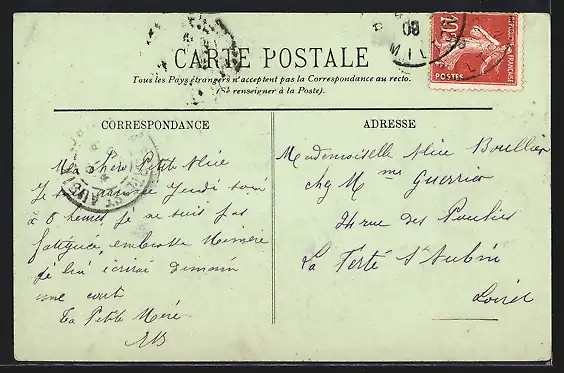 CARTE POSTALE
Tous les Pays étrangers n'acceptent pas la Correspondance au recto.
(Se renseigner à la Poste).
CORRESPONDANCE
Ma chere Petite Alice
Je arrivé Jeudi soir
à 8 heures, je ne suis pas
fatiguée, embrasse Mémère
je lui écrirai demain
une carte
Ta Petite Mère
AB
ADRESSE
Mademoiselle Alice Boullier
chez Mme Guerrier
rue des Poulies
La Ferté St Aubin
Loiret
10
POSTES
RÉPUBLIQUE FRANÇAISE
09
MIL
ST AUBIN